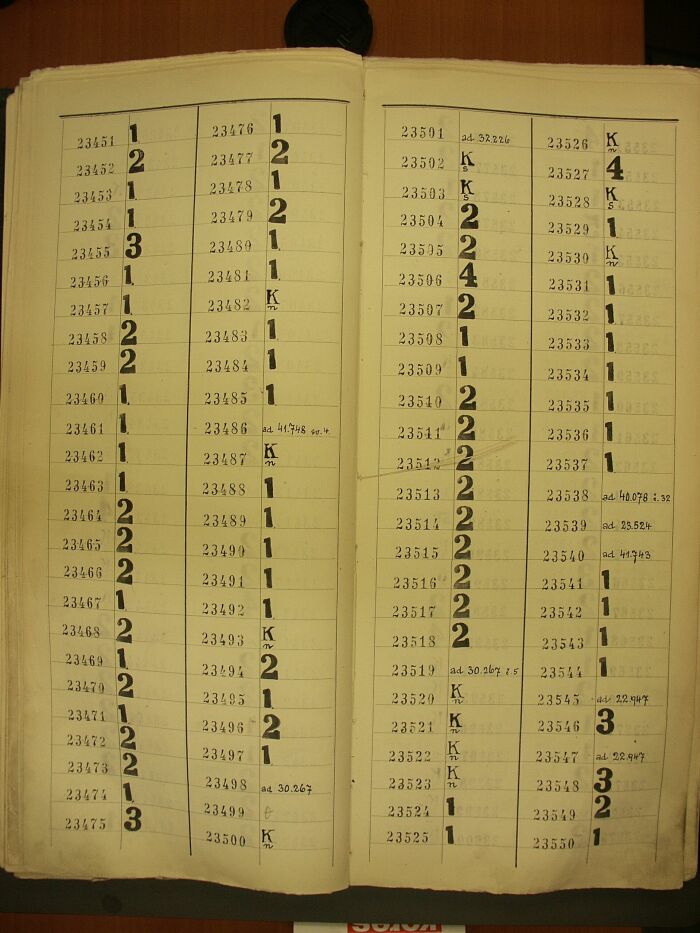 23451 1
23452 2
23453 1
23454 1
23455 3
23456 1
23457 1
23458 2
23459 2
23460 1
23461 1
23462 1
23463 1
23464 2
23465 2
23466 2
23467 1
23468 2
23469 1
23470 2
23471 1
23472 2
23473 2
23474 1
23475 3
23476 1
23477 2
23478 1
23479 2
23480 1
23481 1
23482 K n
23483 1
23484 1
23485 1
23486 ad 41.748 sv. 4.
23487 K n
23488 1
23489 1
23490 1
23491 1
23492 1
23493 K n
23494 2
23495 1
23496 2
23497 1
23498 ad 30.267
23499
23500 K n
23501 ad 32.226
23502 K s
23503 K s
23504 2
23505 2
23506 4
23507 2
23508 1
23509 1
23510 2
23511 2
23512 2
23513 2
23514 2
23515 2
23516 2
23517 2
23518 2
23519 ad 30.267 i. 5
23520 K n
23521 K n
23522 K n
23523 K n
23524 1
23525 1
23526 K n
23527 4
23528 K s
23529 1
23530 K n
23531 1
23532 1
23533 1
23534 1
23535 1
23536 1
23537 1
23538 ad 40.078 i. 32
23539 ad 23.524
23540 ad 41.743
23541 1
23542 1
23543 1
23544 1
23545 ad 22.947
23546 3
23547 ad 22.947
23548 3
23549 2
23550 1